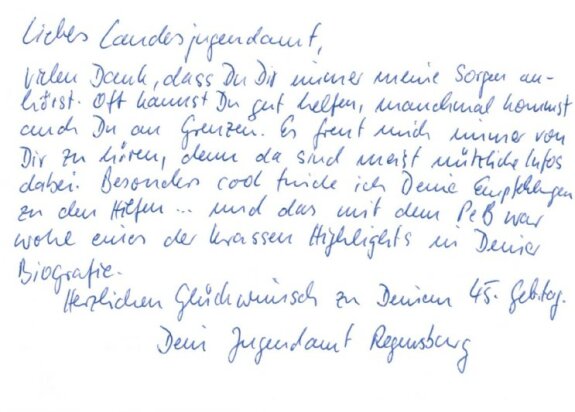 Liebes Landesjugendamt,
vielen Dank, dass Du Dir immer meine Sorgen an-
hörst. Oft kannst Du gut helfen, manchmal kommst
auch Du an Grenzen. Es freut mich immer von
Dir zu hören, denn da sind meist nützliche Infos
dabei. Besonders cool finde ich Deine Empfehlungen
zu den Hilfen... und das mit dem PeB war
wohl eines der krassen Highlights in Deiner
Biografie.
Herzlichen Glückwunsch zu Deinem 45. Gebtag.
Dein Jugendamt Regensburg